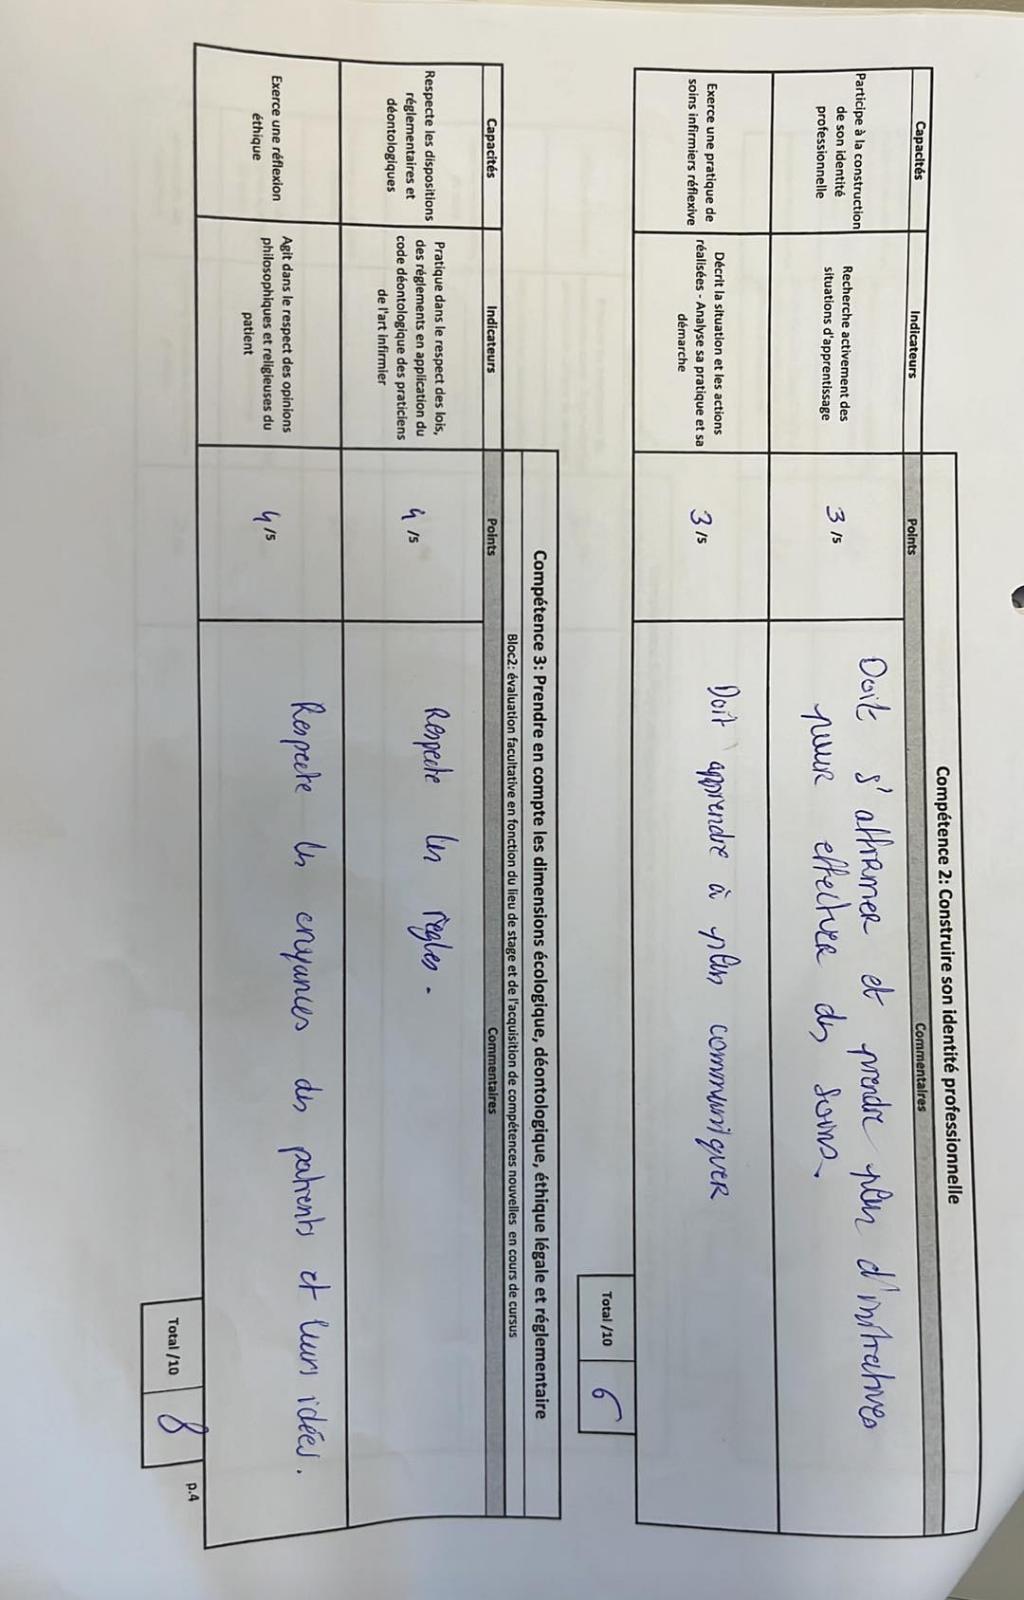 Compétence 2: Construire son identité professionnelle
Capacités Indicateurs Points Commentaires
Participe à la construction
de son identité
professionnelle
Recherche activement des
situations d'apprentissage
3 /5
Doit s'affirmer et prendre plus d'initiatives
pour effectuer des soins.
Exerce une pratique de
soins infirmiers réflexive
Décrit la situation et les actions
réalisées - Analyse sa pratique et sa
démarche
3 /5
Doit apprendre à plus communiquer
Total /10 6
Compétence 3: Prendre en compte les dimensions écologique, déontologique, éthique légale et réglementaire
Bloc2: évaluation facultative en fonction du lieu de stage et de l'acquisition de compétences nouvelles en cours de cursus
Capacités Indicateurs Points Commentaires
Respecte les dispositions
réglementaires et
déontologiques
Pratique dans le respect des lois,
des réglements en application du
code déontologique des praticiens
de l'art infirmier
4 /5
Respecte les règles.
Exerce une réflexion
éthique
Agit dans le respect des opinions
philosophiques et religieuses du
patient
4 /5
Respecte les croyances des patients et leurs idées.
Total /10 8
p.4